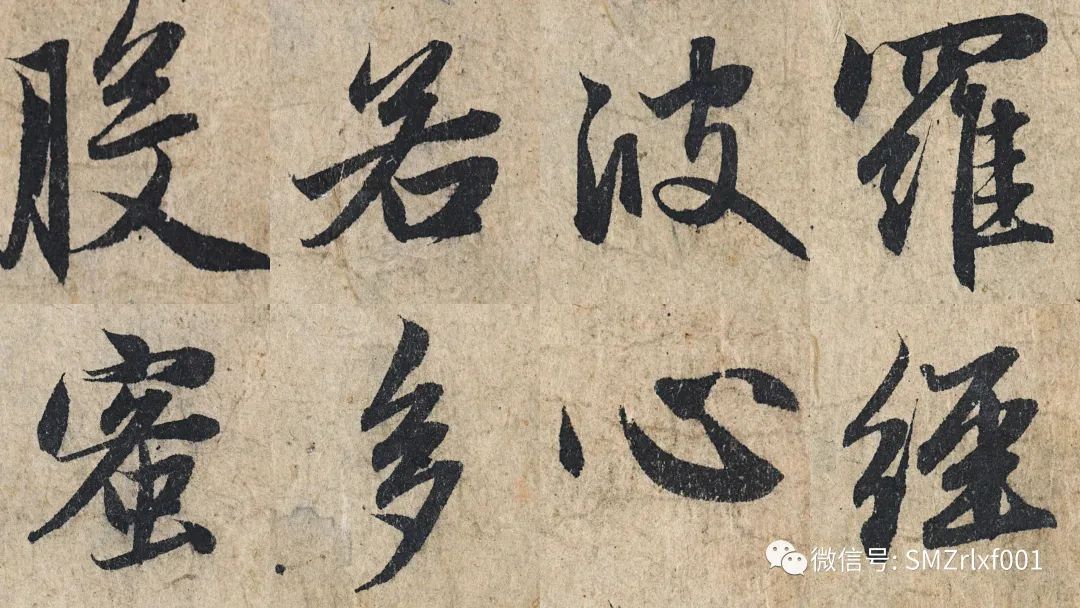 般若波羅
蜜多心經
微信号: SMZrlxf001